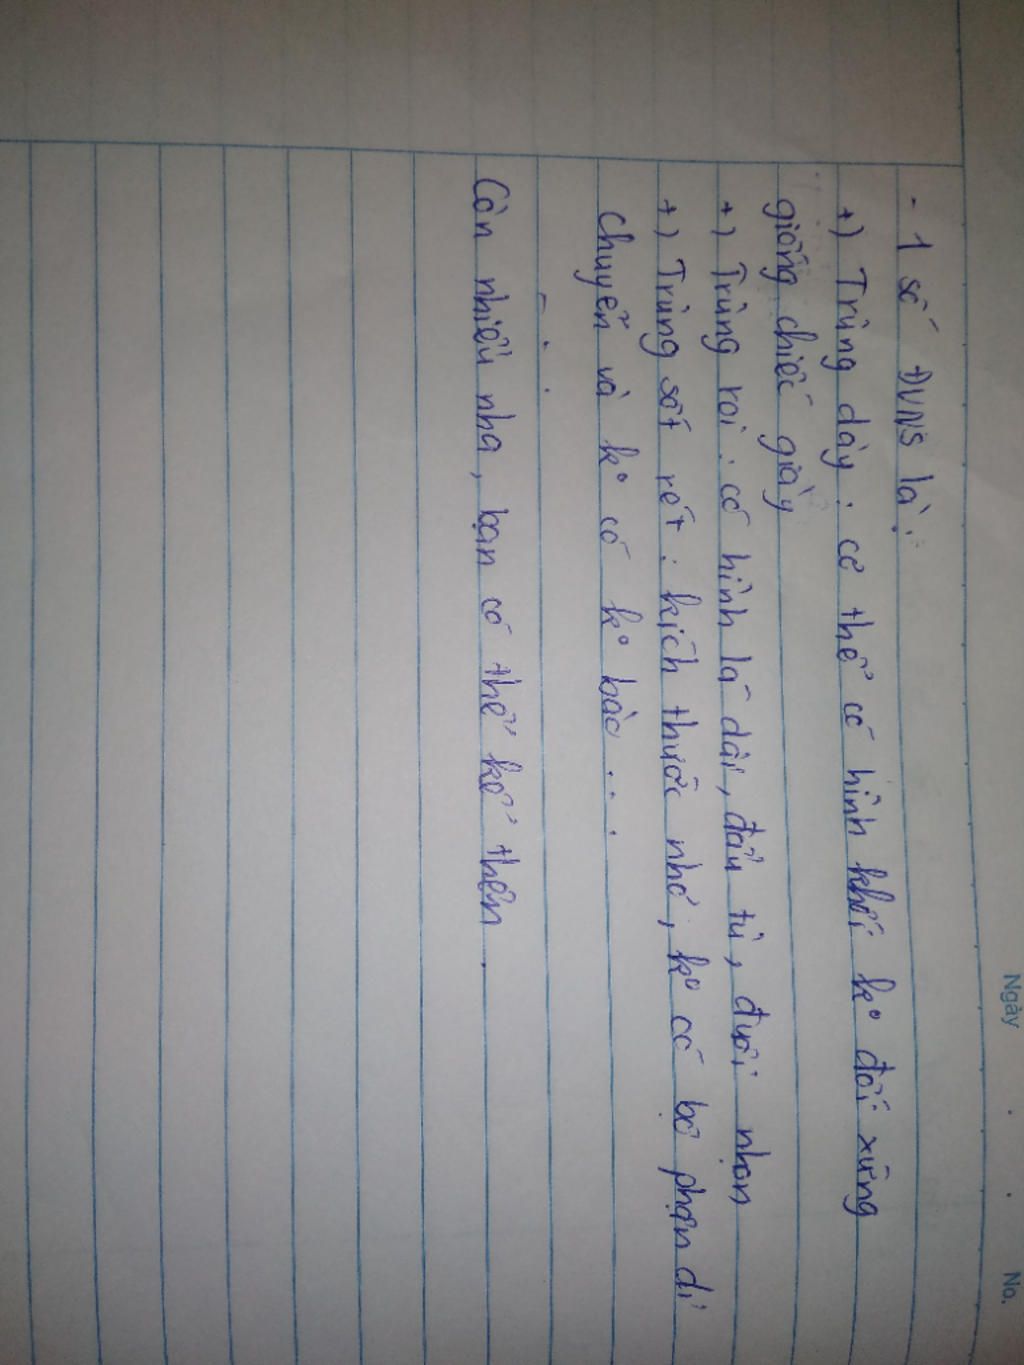 Ngày . . No.
- 1 số ĐVNS là :
+) Trùng dày : cơ thể có hình khối ko đối xứng
giống chiếc giày
+) Trùng roi : có hình lá dài, đầu tù, đuôi nhọn
+) Trùng sốt rét : kích thước nhỏ, ko có bộ phận di
chuyển và ko có ko bào ...
- . .
Còn nhiều nha, bạn có thể kể thêm .